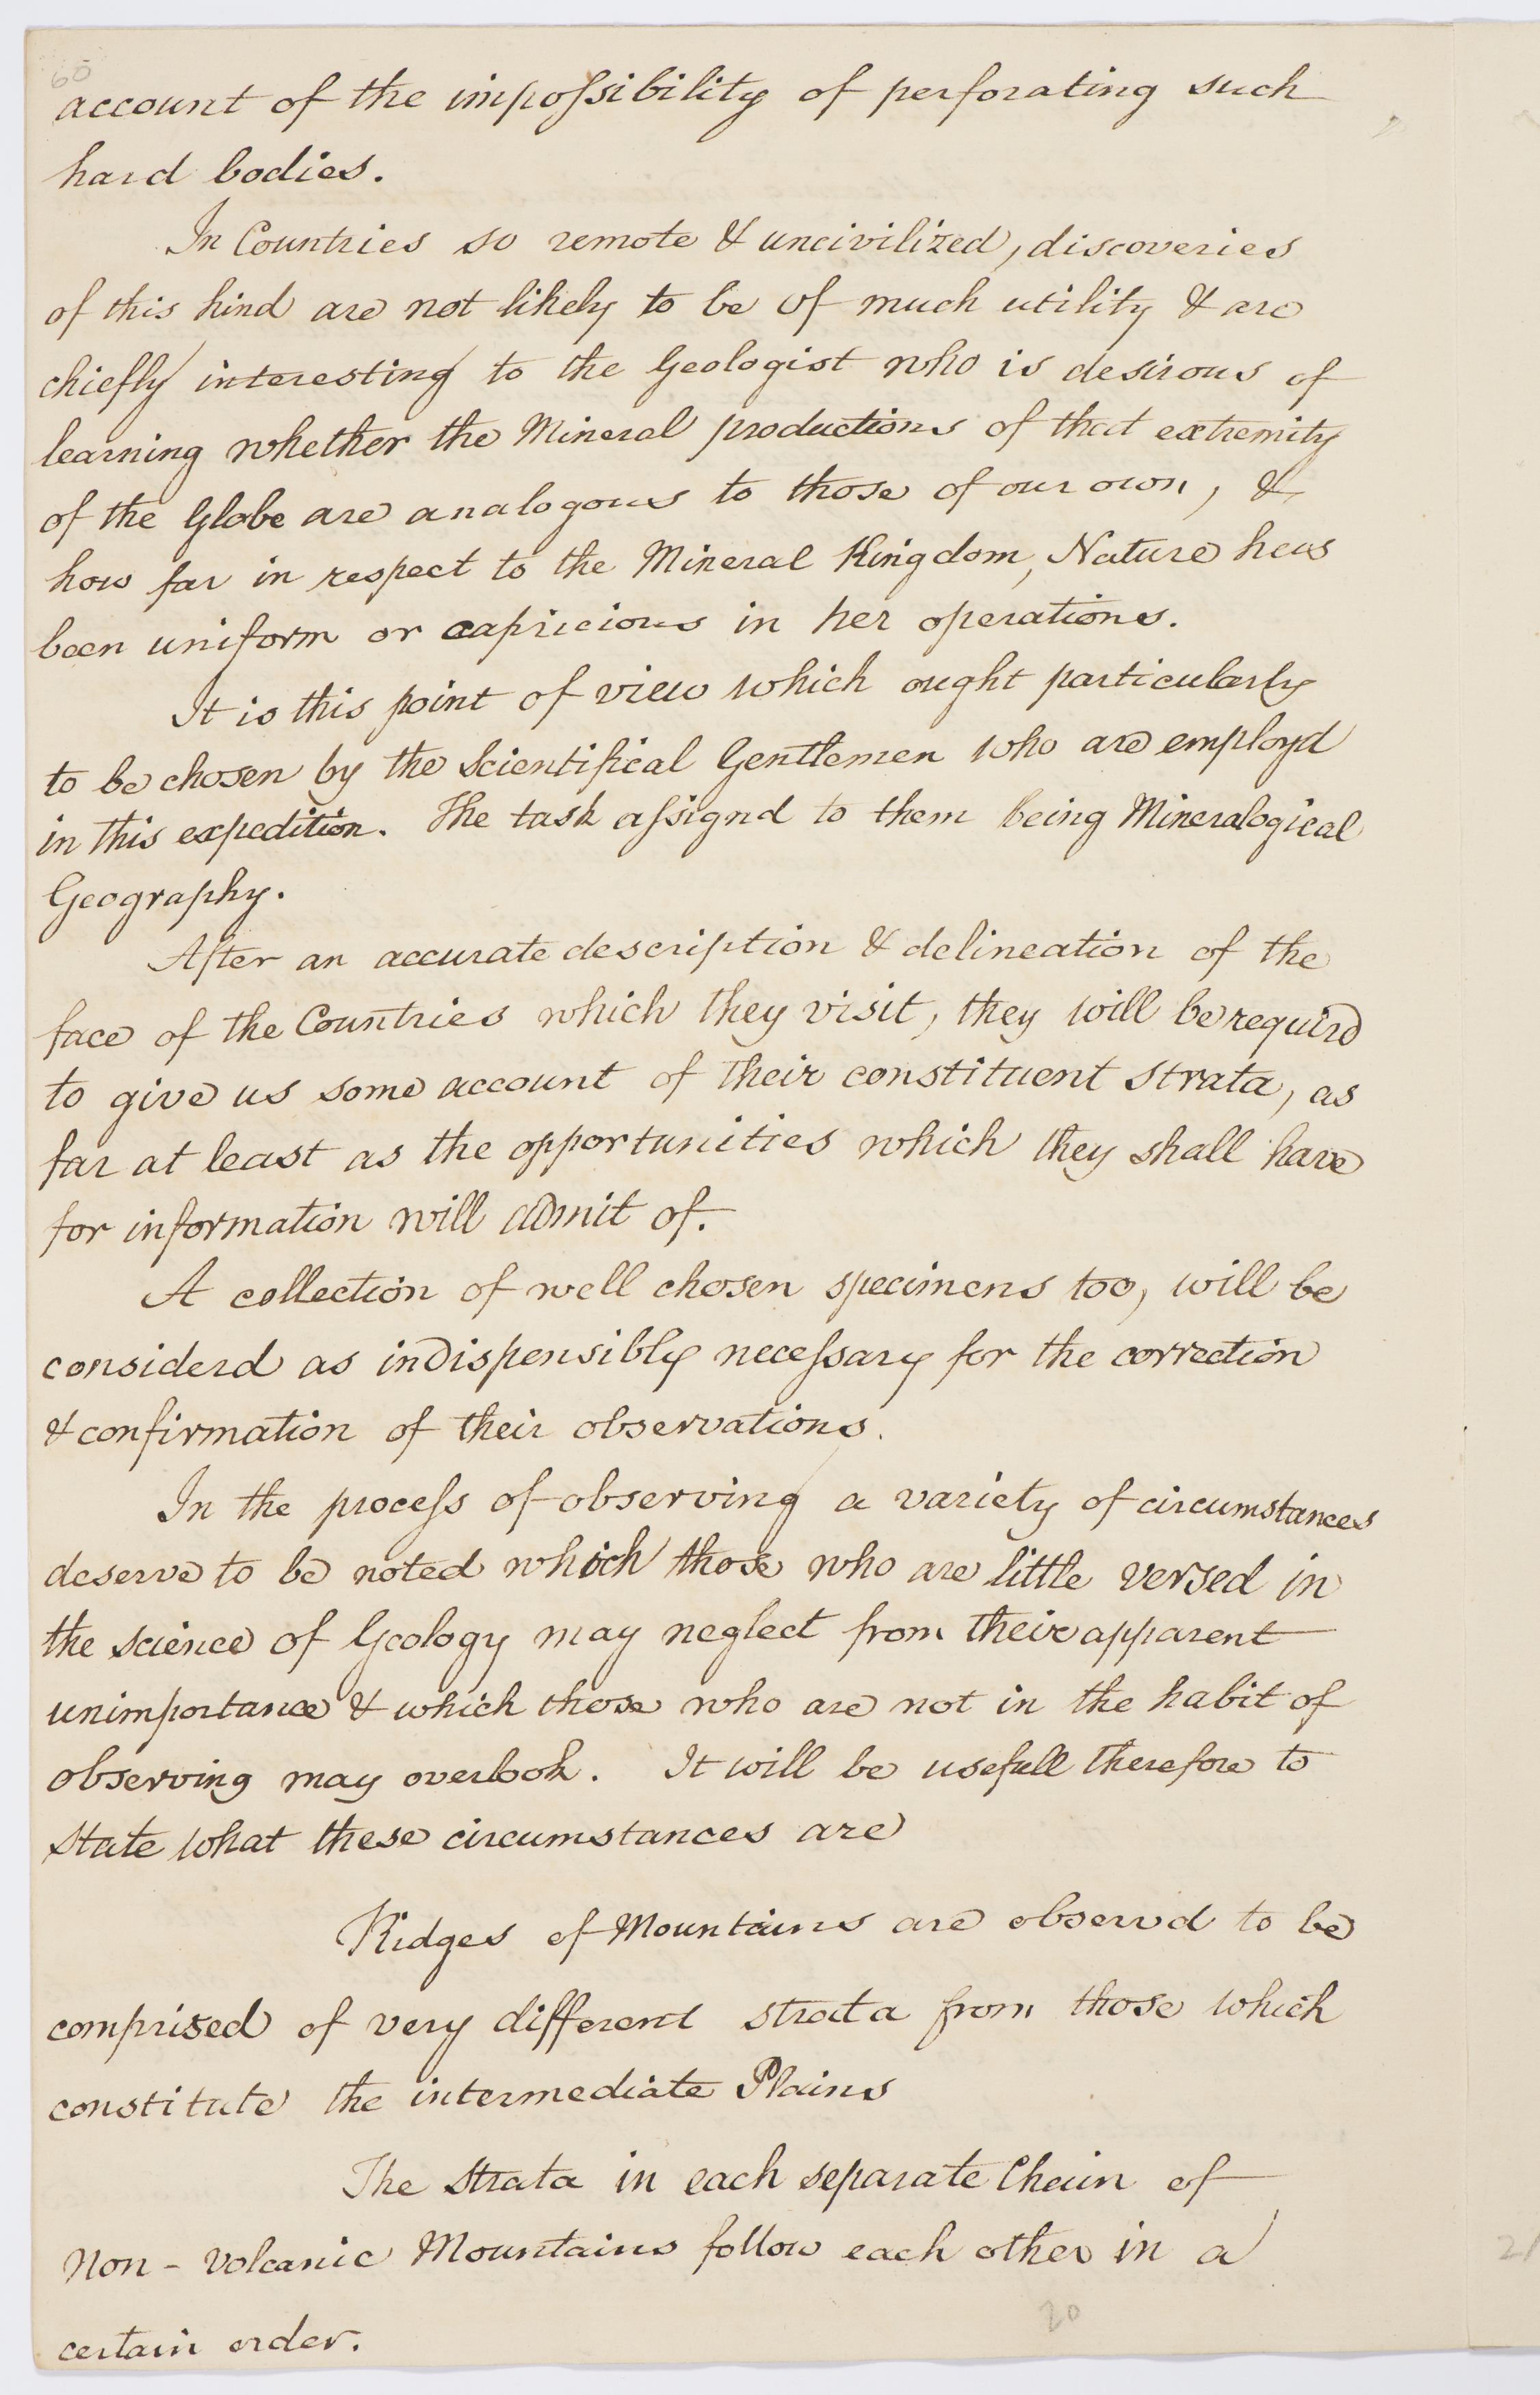 60
account of the impoſsibility of perforating such
hard bodies.
In Countries so remote & uncivilized, discoveries
of this kind are not likely to be of much utility & are
chiefly interesting to the Geologist who is desirous of
learning whether the Mineral productions of that extremity
of the Globe are analogous to those of our own, &
how far in respect to the Mineral Kingdom, Nature has
been uniform or capricious in her operations.
It is this point of view which ought particularly
to be chosen by the Scientifical Gentlemen who are employd
in this expedition. The task aſsignd to them being Mineralogical
Geography.
After an accurate description & delineation of the
face of the Countries which they visit, they will be requird
to give us some account of their constituent strata, as
far at least as the opportunities which they shall have
for information will admit of.
A collection of well chosen specimens too, will be
considerd as indispensibly neceſsary for the correction
& confirmation of their observations.
In the proceſs of observing a variety of circumstances
deserve to be noted which those who are little versed in
the science of Geology may neglect from their apparent
unimportance & which those who are not in the habit of
observing may overlook. It will be usefull therefore to
State what these circumstances are
Ridges of Mountains are observd to be
comprised of very different strata from those which
constitute the intermediate Plains
The Strata in each separate Chain of
Non-Volcanic Mountains follow each other in a
certain order.
20
21